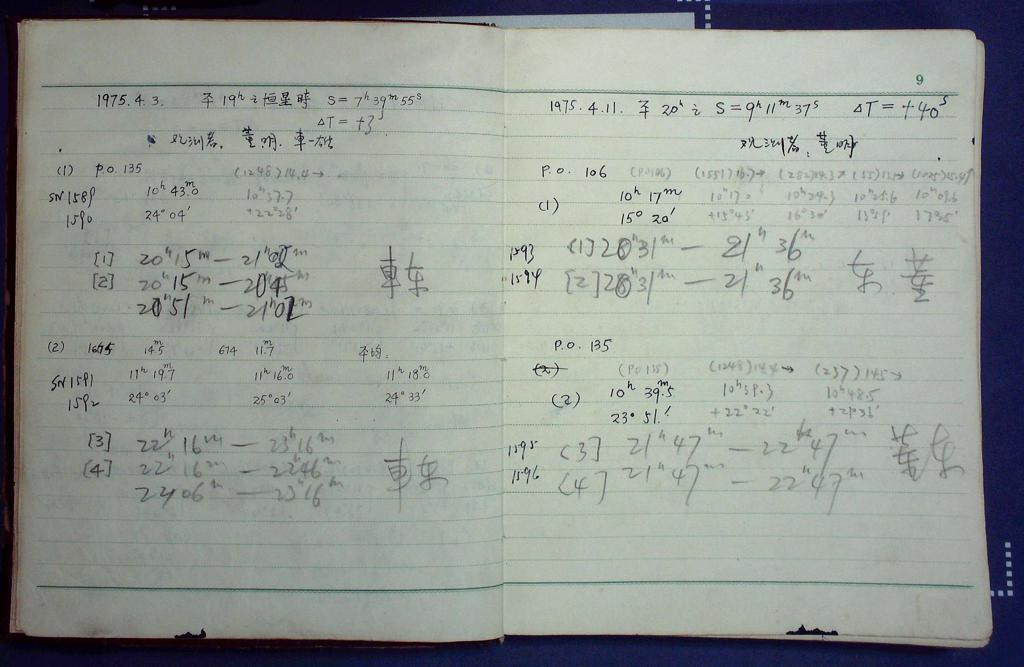 1975.4.3. 平 19ʰ 之恒星時 S = 7ʰ 39ᵐ 55ˢ
ΔT = +3ˢ
观测者. 董明. 車一雄
(1) P.O. 135 (1248) 14.4→
SN1589 10ʰ 43ᵐ.0 10ʰ37.7
1590 24° 04' +22°28'
[1] 20ʰ15ᵐ — 21ʰ02ᵐ
[2] 20ʰ15ᵐ — 2045ᵐ 車东
2051ᵐ — 21ʰ02ᵐ
(2) 1675 14.5ᵐ 674 11.7ᵐ 平均:
SN1591 11ʰ 19ᵐ.7 11ʰ 16ᵐ.0 11ʰ 18ᵐ.0
1592 24° 03' 25° 03' 24° 33'
[3] 22ʰ16ᵐ — 23ʰ16ᵐ
[4] 22ʰ16ᵐ — 2246ᵐ 車东
2306ᵐ — 23ʰ16ᵐ
9
1975.4.11. 平 20ʰ 之 S = 9ʰ 11ᵐ 37ˢ ΔT = +40ˢ
观测者: 董明
P.O. 106 (PO106) (1551) 16.7→ (282) 14.3→
(1) 10ʰ 17ᵐ 10ʰ17.0 10ʰ24.3 10ʰ25.6 10ʰ09.6
15° 20' +15°43' 16°30' 13°59' 17°35'
1593 (1] 2031ᵐ — 21ʰ 36ᵐ
1594 [2] 2031ᵐ — 21ʰ 36ᵐ 东 董
P.O. 135
(2) (PO135) (1248) 14.4→ (237) 14.5→
(2) 10ʰ 39ᵐ.5 10ʰ39.3 10ʰ48.5
23° 51.' +22°22' +21°36'
1595 (3] 21ʰ47ᵐ — 22ʰ47ᵐ 董东
1596 (4] 21ʰ47ᵐ — 22ʰ47ᵐ